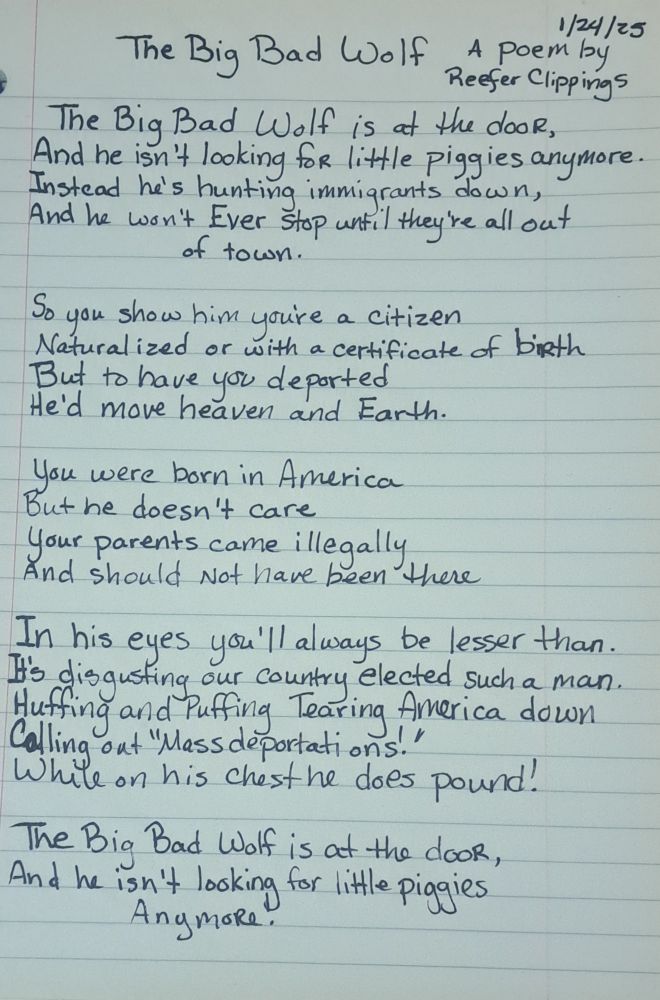 1/24/25
The Big Bad Wolf A poem by
Reefer Clippings
The Big Bad Wolf is at the dooR,
And he isn't looking foR little piggies anymore.
Instead he's hunting immigrants down,
And he won't Ever stop until they're all out
of town.
So you show him you're a citizen
Naturalized or with a certificate of biRth
But to have you deported
He'd move heaven and Earth.
You were born in America
But he doesn't care
Your parents came illegally
And should Not have been there
In his eyes you'll always be lesser than.
It's disgusting our country elected such a man.
Huffing and Puffing Tearing America down
Calling out "Mass deportations!"
While on his chest he does pound!
The Big Bad Wolf is at the dooR,
And he isn't looking for little piggies
AnymoRe!